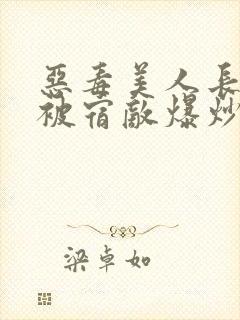 惡毒美人長
被宿敵爆炒
梁卓如